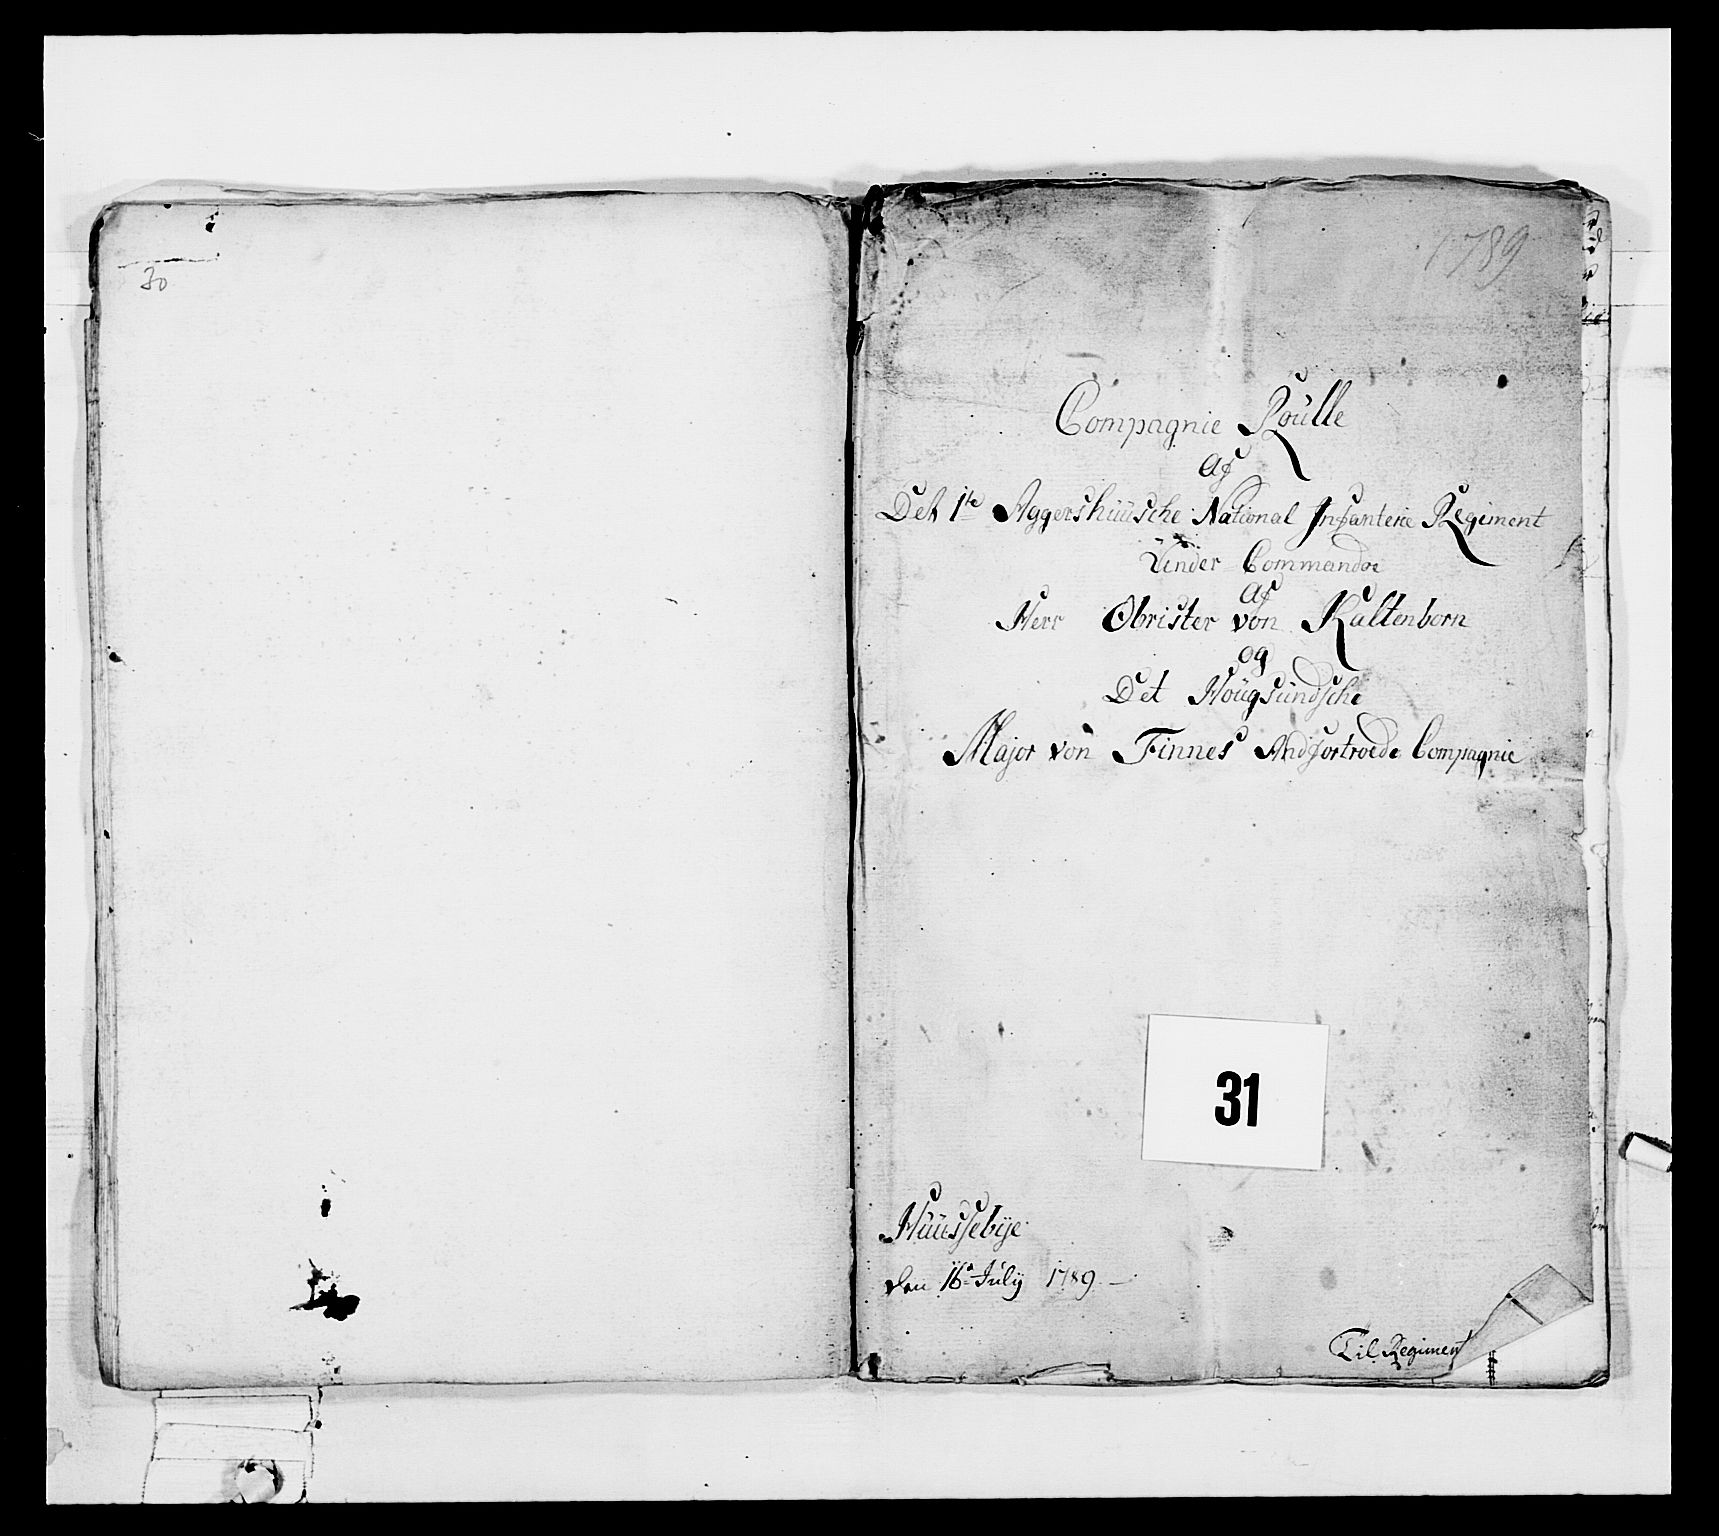 30
1789
Compagnie Roülle
af
Det 1te Aggershüüsche National Infanterie Regiment
Ünder Commando
af
Herr Obrister von Kaltenborn
og
Det Hoügsündsche
Major von Finnes Andfortroede Compagnie
31
Hüüssebÿe
den 16de Julÿ 1789 –
Til Regiment